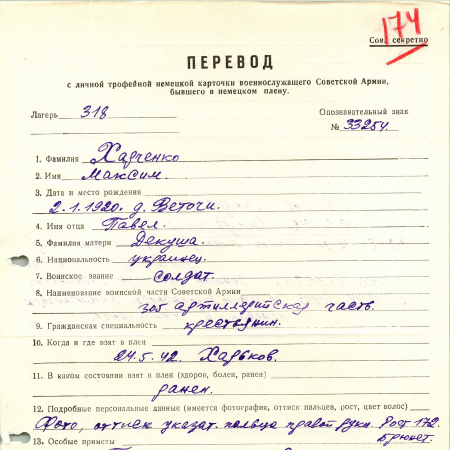 174
Сов. секретно
ПЕРЕВОД
с личной трофейной немецкой карточки военнослужащего Советской Армии,
бывшего в немецком плену.
Лагерь 318 Опознавательный знак
№ 33254.
1. Фамилия Харченко
2. Имя Максим.
3. Дата и место рождения
2.1.1920. д. Веточи.
4. Имя отца Павел.
5. Фамилия матери Декуша.
6. Национальность украинец.
7. Воинское звание солдат.
8. Наименование воинской части Советской Армии
305 артиллерийская часть.
9. Гражданская специальность крестьянин.
10. Когда и где взят в плен
24.5.42. Харьков.
11. В каком состоянии взят в плен (здоров, болен, ранен)
ранен.
12. Подробные персональные данные (имеется фотография, оттиск пальцев, рост, цвет волос)
Фото, оттиск указат. пальца правой руки. Рост 172.
Брюнет.
13. Особые приметы